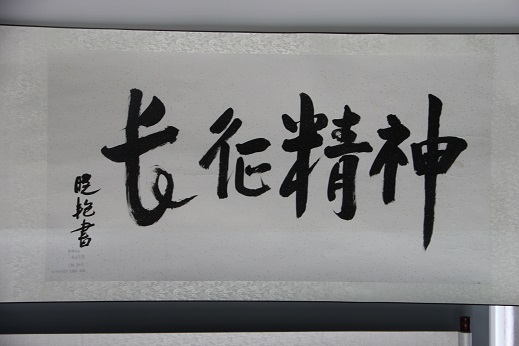 长征精神
晓艳書